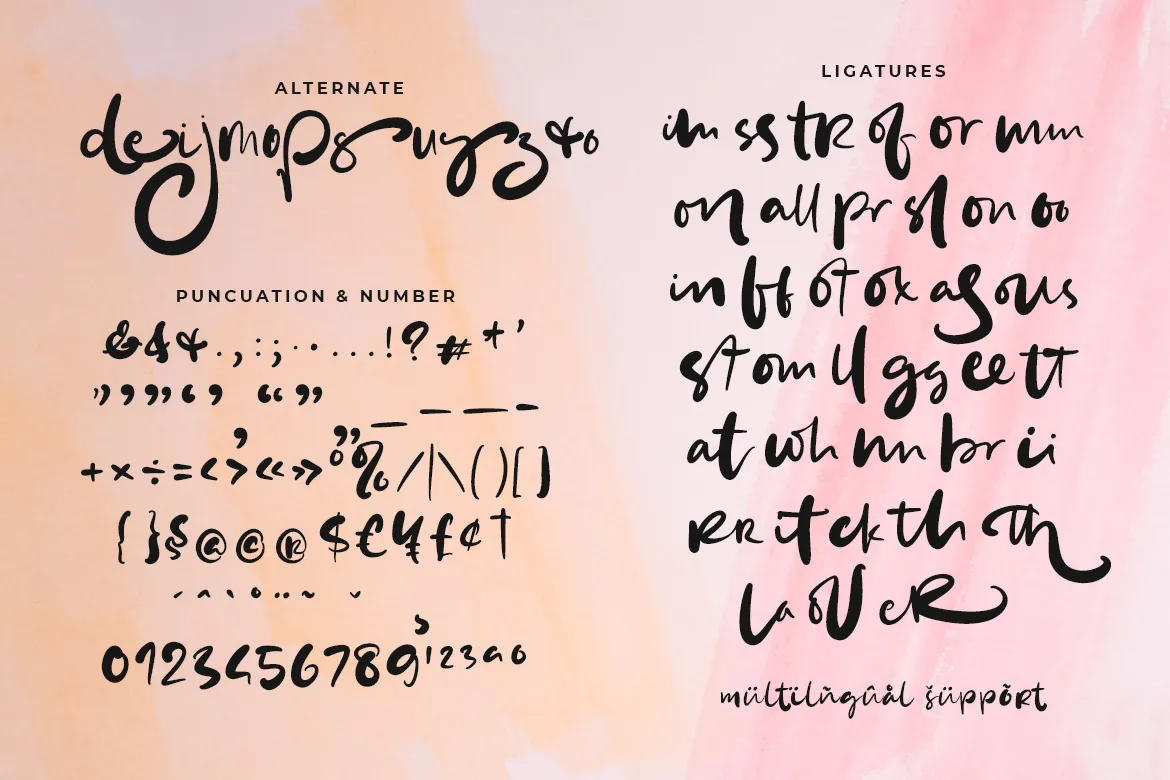 ALTERNATE
deijmopsruyz&o
PUNCUATION & NUMBER
&&&.,:;·•...!?#*'
"’”‘’“”
_—–-
+×÷=<>«»°%/|\()[]
{}§@©®$€¥£¢†
´^`°¨~ˇ
0123456789¹²³ªº
LIGATURES
im ss tr of or mm
on all pr sl on oo
in ff ot ox as ous
st om ll gg ee tt
at wh nn br ii
RR it ck th th
La ov er
mültïlñgûål šüppõrt